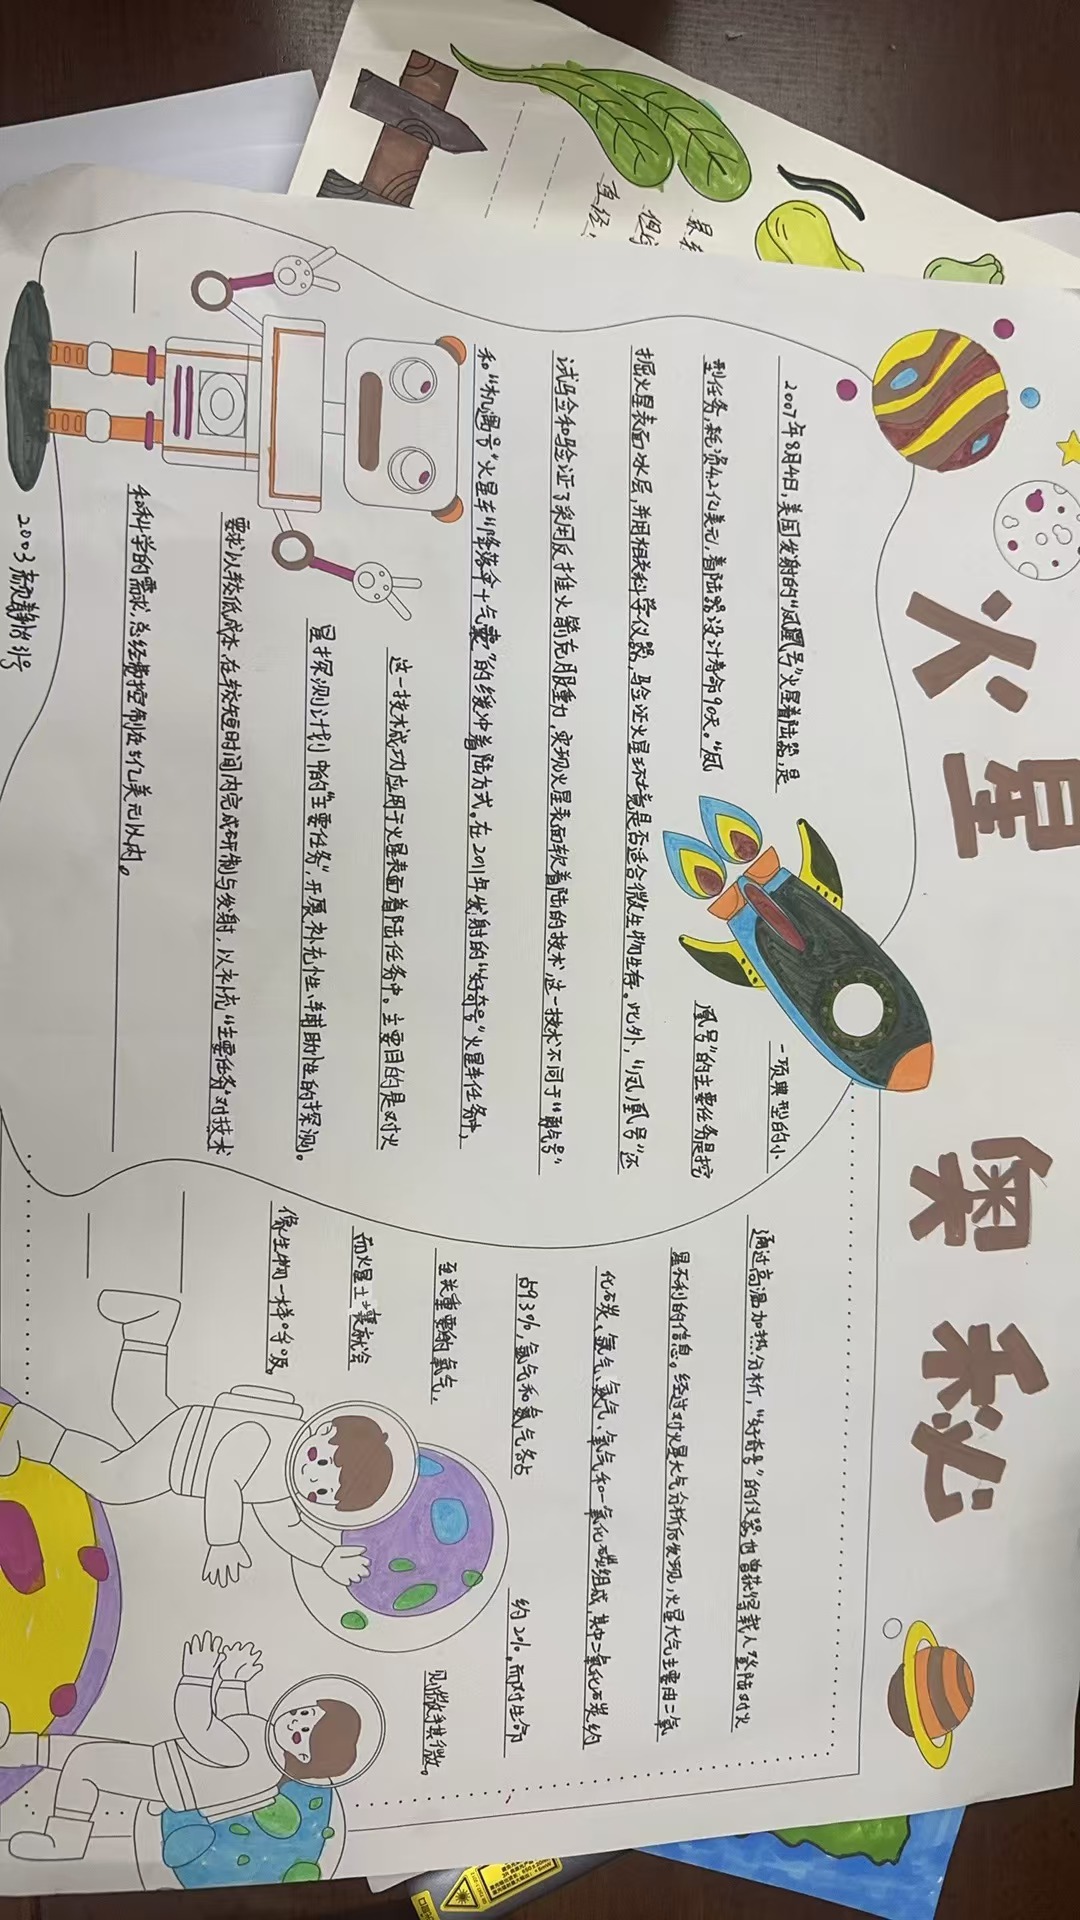 火星奥秘
2007年8月4日,美国发射的“凤凰号”火星着陆器,是
一项典型的小
型任务,耗资4.2亿美元,着陆器设计寿命90天。“凤
凰号”的主要任务是挖
掘火星表面冰层,并用相关科学仪器,验证火星环境是否适合微生物生存。此外,“凤凰号”还
试验和验证了采用反推火箭克服重力,实现火星表面软着陆的技术,这一技术不同于“勇气号”
和“机遇号”火星车“降落伞+气囊”的缓冲着陆方式。在2011年发射的“好奇号”火星车任务中,
这一技术成功应用于火星表面着陆任务中。主要目的是对火
星探测计划中的“主要任务”,开展补充性、辅助性的探测。
要求以较低成本、在较短时间内完成研制与发射,以补充“主要任务”对技术
和科学的需求,总经费控制在5亿美元以内。
通过高温加热分析,“好奇号”的仪器也曾获得载人登陆对火
星不利的信息。经过对火星大气分析仪发现,火星大气主要由二氧
化石炭、氩气、氮气、氧气和一氧化碳组成,其中二氧化石炭约
占93%,氩气和氮气各占
约2%。而对生命
至关重要的氧气,
则微乎其微。
而火星土壤就会
像生物一样呼吸。
2003
静怡 31号
最
但
直径: